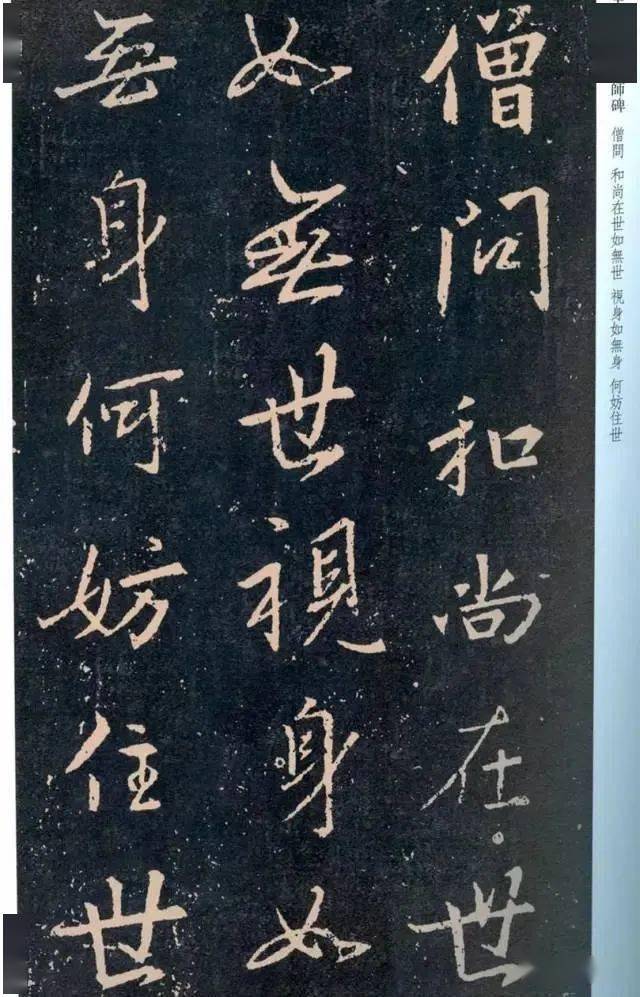 僧問和尚在世
如無世視身如
無身何妨住世
師碑 僧問 和尚在世如無世 視身如無身 何妨住世